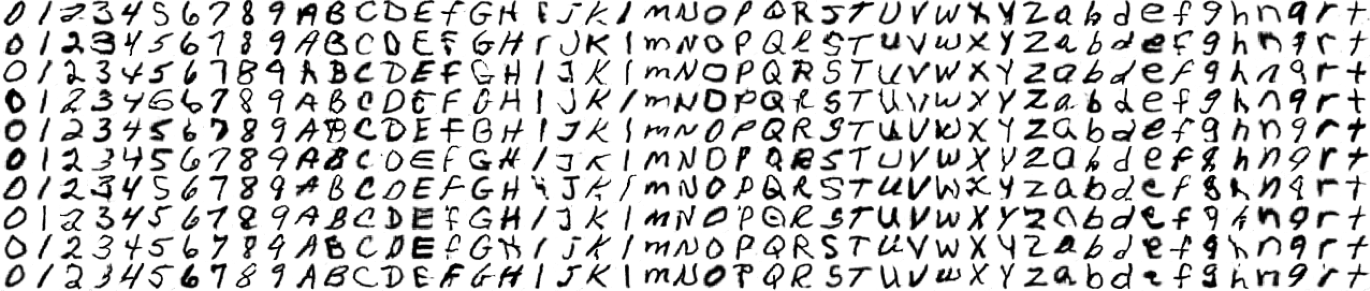 0 1 2 3 4 5 6 7 8 9 A B C D E f G H I J K l m N O P Q R S T U V W X Y Z a b d e f g h n q r t
0 1 2 3 4 5 6 7 8 9 A B C D E F G H I J K l m N O P Q R S T U V W X Y Z a b d e f g h n q r t
0 1 2 3 4 5 6 7 8 9 A B C D E F G H I J K l m N O P Q R S T U V W X Y Z a b d e f g h n q r t
0 1 2 3 4 5 6 7 8 9 A B C D E F G H I J K l m N O P Q R S T U V W X Y Z a b d e f g h n q r t
0 1 2 3 4 5 6 7 8 9 A B C D E f G H I J K l M N O P Q R S T U V W X Y Z a b d e f g h n q r t
0 1 2 3 4 5 6 7 8 9 A B C D E f G H I J K l M N O P Q R S T U V W X Y Z a b d e f g h n q r t
0 1 2 3 4 5 6 7 8 9 A B C D E f G H I J K l m N O P Q R S T U V W X Y Z a b d e f g h n q r t
0 1 2 3 4 5 6 7 8 9 A B C D E f G H I J K l m N O P Q R S T U V W X Y Z a b d e f g h n q r t
0 1 2 3 4 5 6 7 8 9 A B C D E f G H I j K l m N O P Q R S T U V W X Y Z a b d e f g h n q r t
0 1 2 3 4 5 6 7 8 9 A B C D E F G H I J K l m N O P Q R S T U V W X Y Z a b d e f g h n q r t